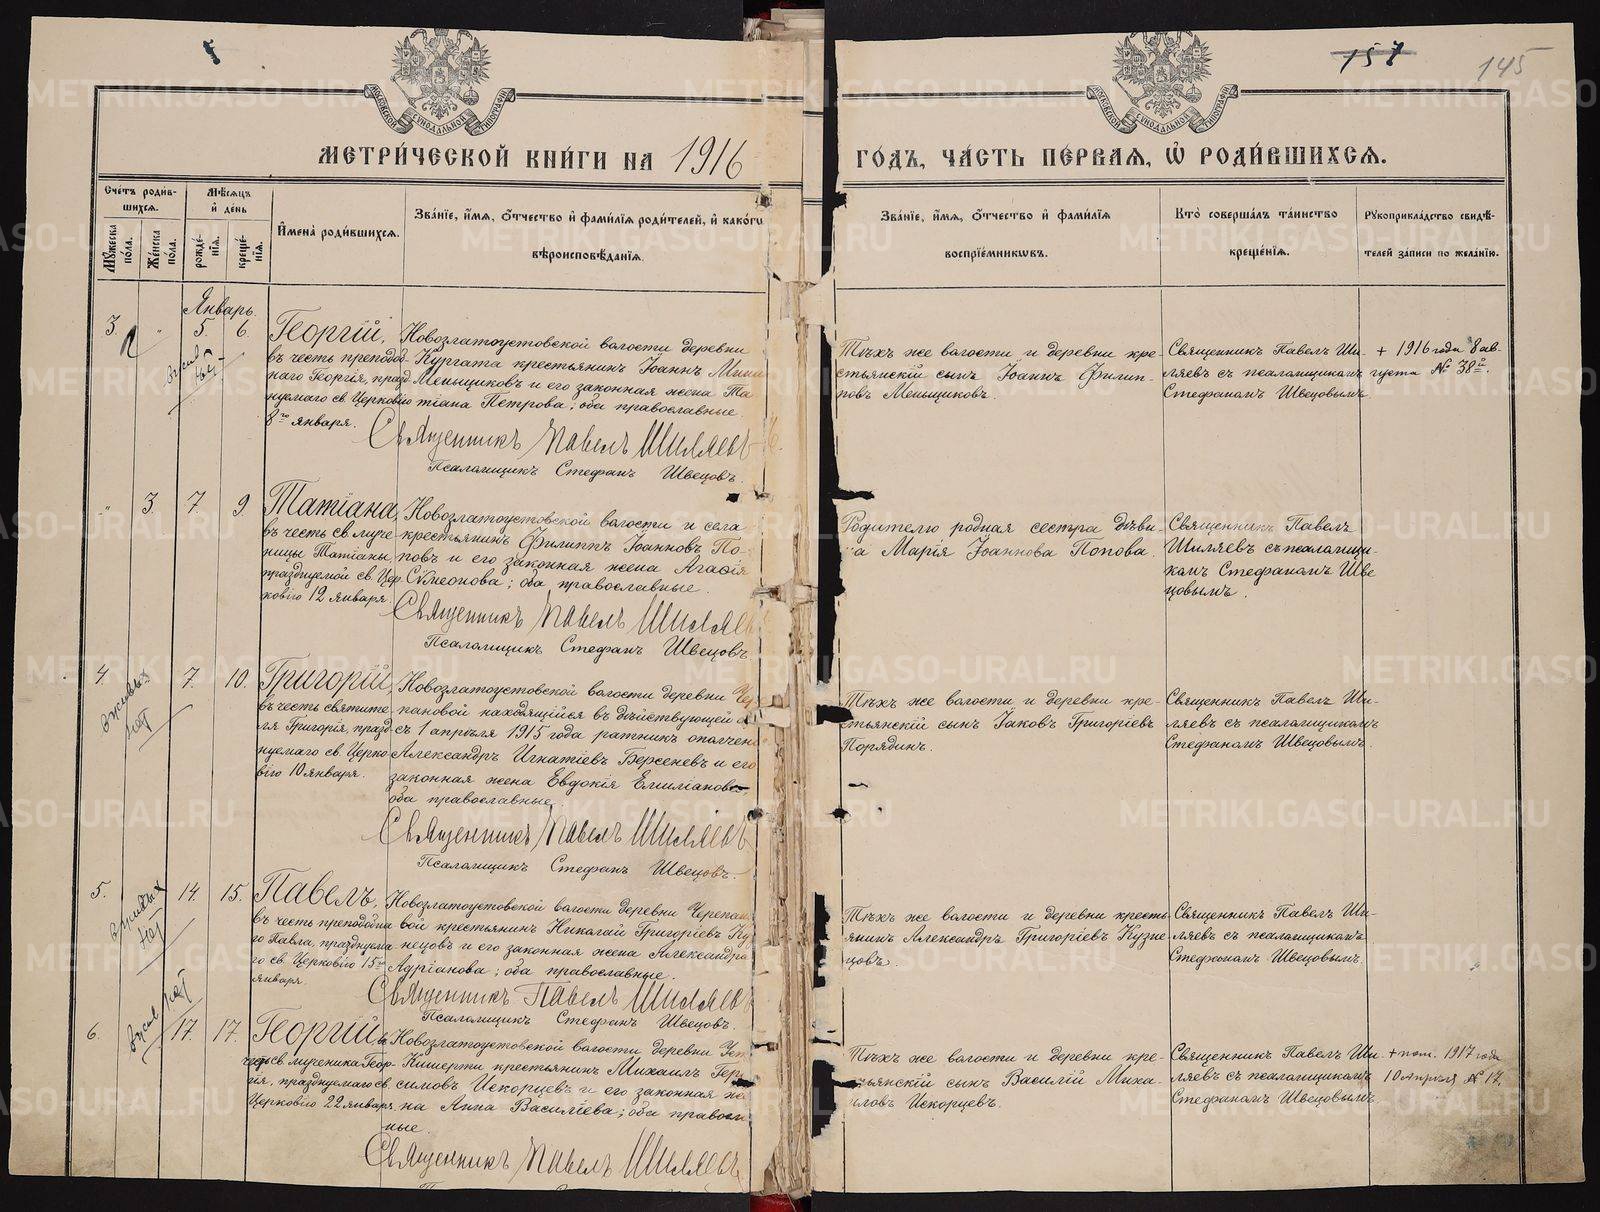 157
145
МОСКОВСКОЙ СѴНОДАЛЬНОЙ ТИПОГРАФІИ
МОСКОВСКОЙ СѴНОДАЛЬНОЙ ТИПОГРАФІИ
МЕТРИ́ЧЕСКОЙ КНИ́ГИ НА 1916
ГО́ДЪ, ЧА́СТЬ ПЕ́РВАЯ, Ѡ РОДИ́ВШИХСЯ.
Сче́тъ роди́вшихся.
Му́жеска по́ла.
Же́нска по́ла.
Мѣ́сяцъ и́ де́нь
рожде́нія.
креще́нія.
И́мена̀ роди́вшихся.
Зва́ніе, и́мя, о́тчество и́ фами́лія роди́телей, и́ како́гѡ вѣроисповѣ́данія.
Зва́ніе, и́мя, о́тчество и́ фами́лія воспріе́мникѡвъ.
Кто̀ соверша́лъ та́инство креще́нія.
Рукоприкла́дство свидѣ́телей за́писи по жела́нію.
Январь.
3. " 5. 6.
Георгій,
въ честь преподоб-
наго Георгія, празд-
нуемаго св. Церковію
8го января.
Новозлатоустовской волости деревни
Кургата крестьянинъ Іоаннъ
Меньщиковъ и его законная жена Та-
тіана Петрова; оба православные.
Священникъ Павелъ Шиляевъ
Псаломщикъ Стефанъ Швецовъ.
Тѣхъ же волости и деревни кре-
стьянскій сынъ Іоаннъ Филип-
повъ Меньщиковъ.
Священникъ Павелъ Ши-
ляевъ съ псаломщикомъ
Стефаномъ Швецовымъ.
+ 1916 года 8 ав-
густа № 38й.
" 3. 7. 9.
Татіана,
въ честь св. муче-
ницы Татіаны,
празднуемой св. Цер-
ковію 12 января.
Новозлатоустовской волости и села
крестьянинъ Филиппъ Іоанновъ По-
повъ и его законная жена Агафія
Сѵмеонова; оба православные.
Священникъ Павелъ Шиляевъ
Псаломщикъ Стефанъ Швецовъ.
Родителю родная сестра дѣви-
ца Марія Іоаннова Попова.
Священникъ Павелъ
Шиляевъ съ псаломщи-
комъ Стефаномъ Шве-
цовымъ.
4. 7. 10.
въ живыхъ
нѣт
Григорій,
въ честь святите-
ля Григорія, празд-
нуемаго св. Церко-
вію 10 января.
Новозлатоустовской волости деревни Чере-
пановой находящійся въ дѣйствующей
съ 1 апрѣля 1915 года ратникъ ополчен
Александръ Игнатіевъ Берсеневъ и его
законная жена Евдокія Емиліанова,
оба православные.
Священникъ Павелъ Шиляевъ
Псаломщикъ Стефанъ Швецовъ.
Тѣхъ же волости и деревни кре-
стьянскій сынъ Іаковъ Григоріевъ
Порядинъ.
Священникъ Павелъ Ши-
ляевъ съ псаломщикомъ
Стефаномъ Швецовымъ.
5. 14. 15.
въ живыхъ
нѣт
Павелъ,
въ честь преподобна-
го Павла, празднуема-
го св. Церковію 15го
января.
Новозлатоустовской волости деревни Черепано-
вой крестьянинъ Николай Григоріевъ Куз-
нецовъ и его законная жена Александра
Адріанова; оба православные.
Священникъ Павелъ Шиляевъ
Псаломщикъ Стефанъ Швецовъ.
Тѣхъ же волости и деревни кресть-
янинъ Александръ Григоріевъ Кузне-
цовъ.
Священникъ Павелъ Ши-
ляевъ съ псаломщикомъ
Стефаномъ Швецовымъ.
6. 17. 17.
Георгій, въ
честь св. мученика Геор-
гія, празднуемаго св.
Церковію 22 января.
Новозлатоустовской волости деревни Усть-
Кишерти крестьянинъ Михаилъ Гера-
симовъ Искорцевъ и его законная же-
на Анна Василіева; оба православ-
ные.
Священникъ Павелъ Шиляевъ
Тѣхъ же волости и деревни кре-
стьянскій сынъ Василій Миха-
иловъ Искорцевъ.
Священникъ Павелъ Ши-
ляевъ съ псаломщикомъ
Стефаномъ Швецовымъ.
1917 года
10 апрѣля № 17.
METRIKI.GASO-URAL.RU